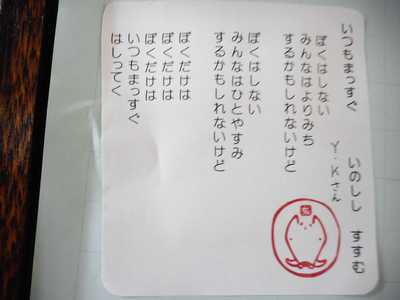 いつもまっすぐ
いのしし　すすむ
Y・Kさん
ぼくはしない
みんなはよりみち
するかもしれないけど
ぼくはしない
みんなはひとやすみ
するかもしれないけど
ぼくだけは
ぼくだけは
ぼくだけは
いつもまっすぐ
はしってく